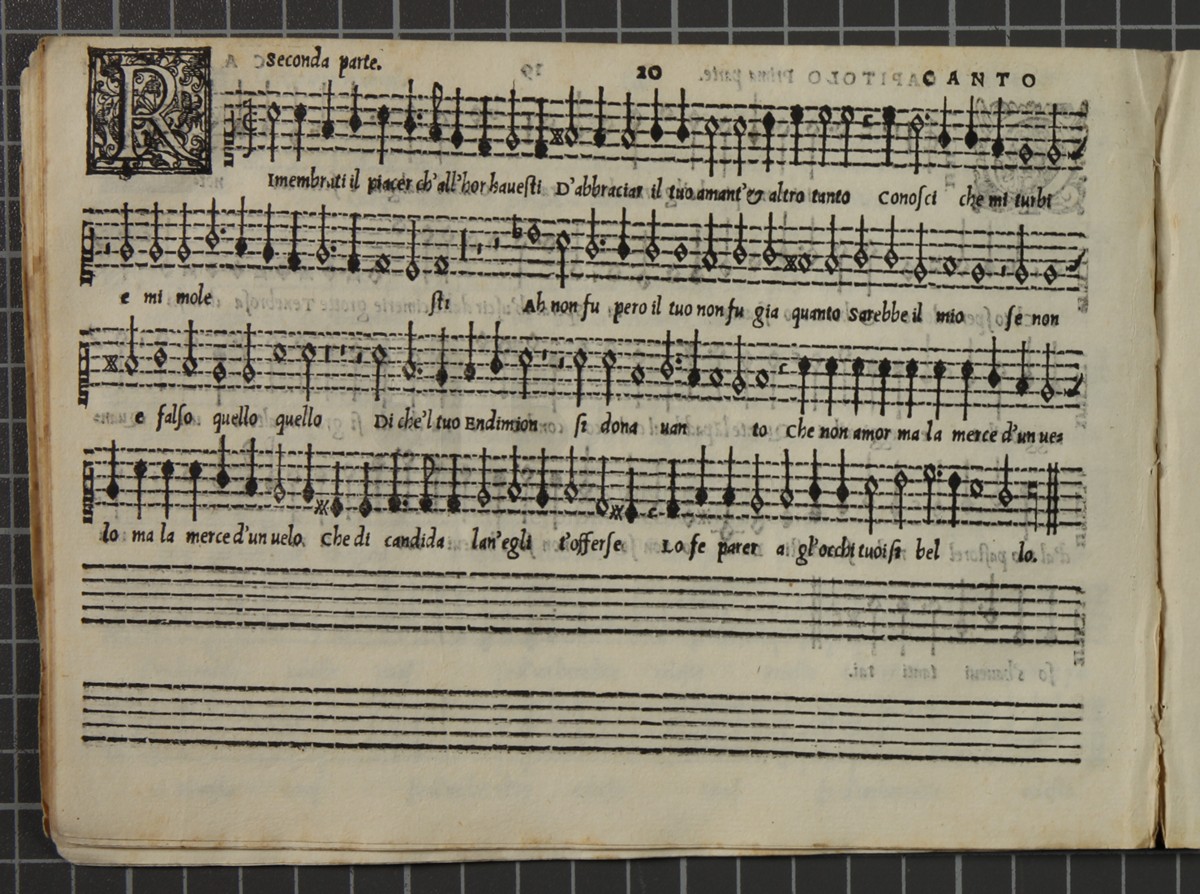 Seconda parte. 20 CANTO
R
Imembrati il piacer ch'all'hor hauesti D'abbraciar il tuo amant'& altro tanto Conosci che mi turbi
e mi mole sti Ah non fu pero il tuo non fu gia quanto Sarebbe il mio se non
e falso quello quello Di che'l tuo Endimion si dona uan to Che non amor ma la merce d'un ue=
lo ma la merce d'un uelo Che di candida lan'egli t'offerse Lo fe parer a gl'occhi tuoi si bel lo.